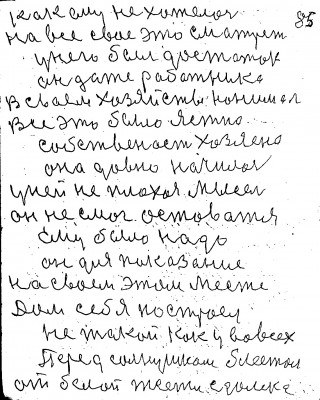 как ему не хотелос 85
на все свое это смотрет
у него был достаток
он даже работника
в своем хозяйстве нанимал
все это было ясно
собственост хозяено
она довно начилос
у ней не плохоя мысел
он не смог остоватя
ему было надо
он для показание
на своем этом месте
дом себя построел
не такой как у вовсех
перед солнушком блестол
от белой жести